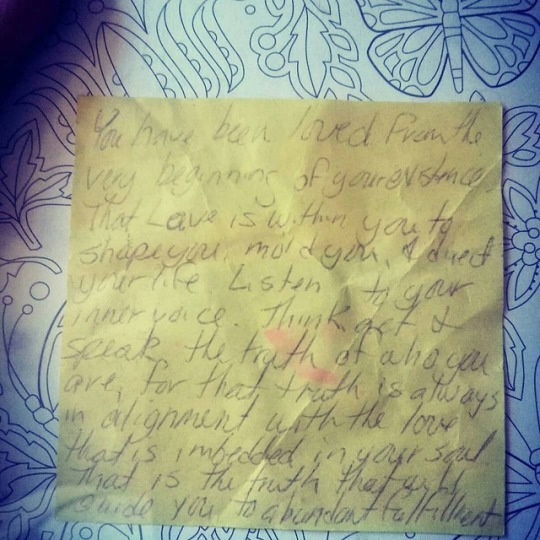 You have been loved from the
very beginning of your existence.
That Love is within you to
shape you, mold you, & direct
your life Listen to your
inner voice. Think, act &
speak the truth of who you
are, for that truth is always
in alignment with the love
that is imbedded in your soul
That is the truth that will
guide you to abundant fulfillment